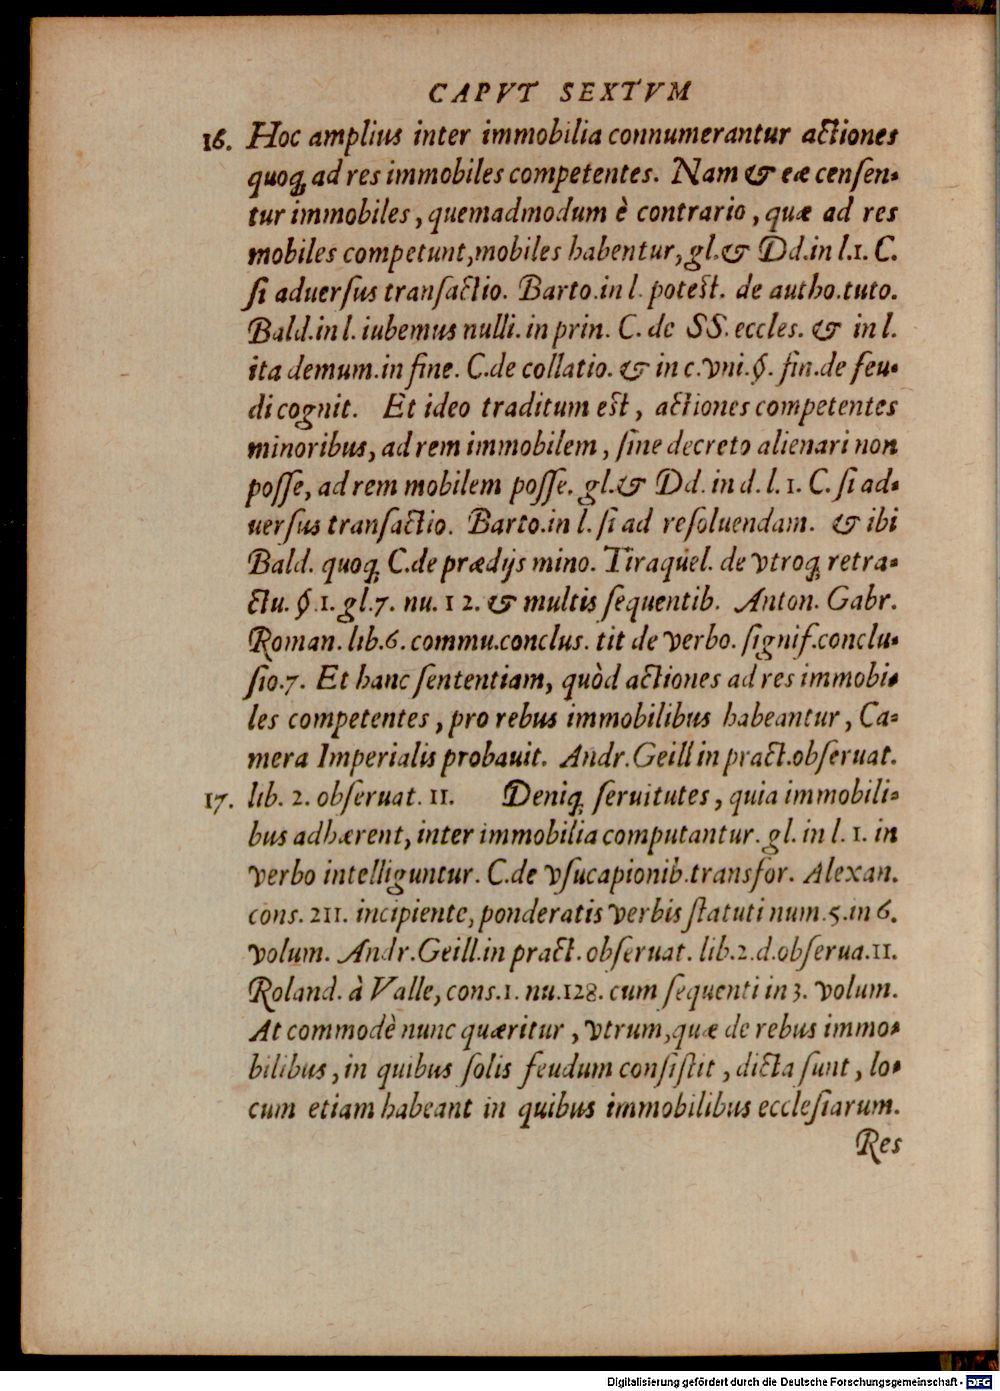 CAPVT SEXTVM
16. Hoc amplius inter immobilia connumerantur actiones
quoq; ad res immobiles competentes. Nam & eæ censen-
tur immobiles, quemadmodum è contrario, quæ ad res
mobiles competunt, mobiles habentur, gl. & Dd. in l. 1. C.
si aduersus transactio. Barto. in l. potest. de autho. tuto.
Bald. in l. iubemus nulli. in prin. C. de SS. eccles. & in l.
ita demum. in fine. C. de collatio. & in c. vni. §. fin. de feu-
di cognit. Et ideo traditum est, actiones competentes
minoribus, ad rem immobilem, sine decreto alienari non
posse, ad rem mobilem posse. gl. & Dd. in d. l. 1. C. si ad-
uersus transactio. Barto. in l. si ad resoluendam. & ibi
Bald. quoq; C. de prædijs mino. Tiraquel. de vtroq; retra-
ctu. §. 1. gl. 7. nu. 12. & multis sequentib. Anton. Gabr.
Roman. lib. 6. commu. conclus. tit de verbo. signif. conclu-
sio. 7. Et hanc sententiam, quòd actiones ad res immobi-
les competentes, pro rebus immobilibus habeantur, Ca-
mera Imperialis probauit. Andr. Geill in pract. obseruat.
17. lib. 2. obseruat. 11. Deniq; seruitutes, quia immobili-
bus adhærent, inter immobilia computantur. gl. in l. 1. in
verbo intelliguntur. C. de vsucapionib. transfor. Alexan.
cons. 211. incipiente, ponderatis verbis statuti num. 5. in 6.
volum. Andr. Geill. in pract. obseruat. lib. 2. d. obserua. 11.
Roland. à Valle, cons. 1. nu. 128. cum sequenti in 3. volum.
At commodè nunc quæritur, vtrum, quæ de rebus immo-
bilibus, in quibus solis feudum consistit, dicta sunt, lo-
cum etiam habeant in quibus immobilibus ecclesiarum.
Res
Digitalisierung gefördert durch die Deutsche Forschungsgemeinschaft - DFG